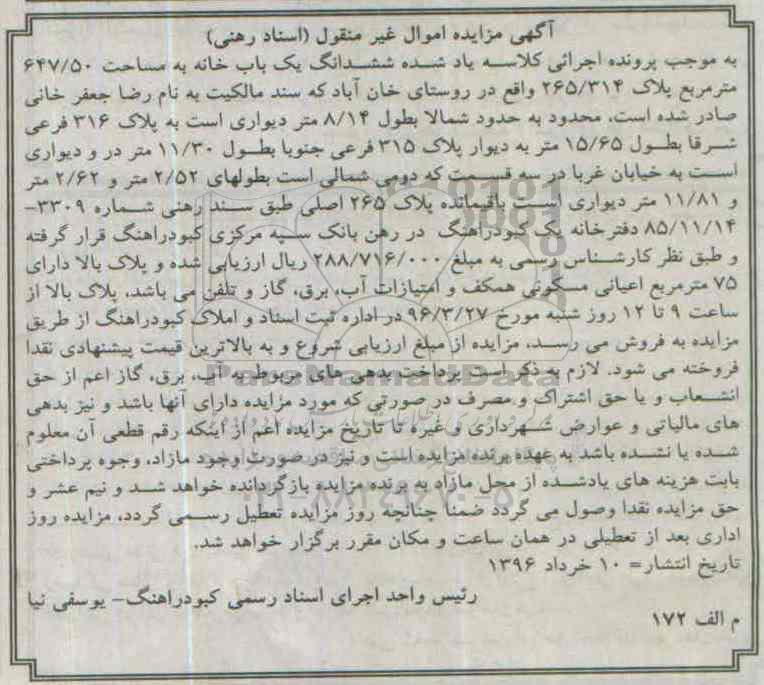 آگهی مزایده اموال غیر منقول (اسناد رهنی)
به موجب پرونده اجرائی کلاسه یاد شده ششدانگ یک باب خانه به مساحت ۶۴۷/۵۰
مترمربع پلاک ۲۶۵/۳۱۴ واقع در روستای خان آباد که سند مالکیت به نام رضا جعفر خانی
صادر شده است، محدود به حدود شمالا بطول ۸/۱۴ متر دیواری است به پلاک ۳۱۶ فرعی
شرقا بطول ۱۵/۶۵ متر به دیوار پلاک ۳۱۵ فرعی جنوبا بطول ۱۱/۳۰ متر در و دیواری
است به خیابان غربا در سه قسمت که دومی شمالی است بطولهای ۲/۵۲ متر و ۲/۶۲ متر
و ۱۱/۸۱ متر دیواری است باقیمانده پلاک ۲۶۵ اصلی طبق سند رهنی شماره ۳۳۰۹-
۸۵/۱۱/۱۴ دفترخانه یک کبودراهنگ در رهن بانک سپه مرکزی کبودراهنگ قرار گرفته
و طبق نظر کارشناس رسمی به مبلغ ۲۸۸/۷۱۶/۰۰۰ ریال ارزیابی شده و پلاک بالا دارای
۷۵ مترمربع اعیانی مسکونی همکف و امتیازات آب، برق، گاز و تلفن می باشد، پلاک بالا از
ساعت ۹ تا ۱۲ روز شنبه مورخ ۹۶/۳/۲۷ در اداره ثبت اسناد و املاک کبودراهنگ از طریق
مزایده به فروش می رسد، مزایده از مبلغ ارزیابی شروع و به بالاترین قیمت پیشنهادی نقدا
فروخته می شود. لازم به ذکر است پرداخت بدهی های مربوط به آب، برق، گاز اعم از حق
انشعاب و یا حق اشتراک و مصرف در صورتی که مورد مزایده دارای آنها باشد و نیز بدهی
های مالیاتی و عوارض شهرداری و غیره تا تاریخ مزایده اعم از اینکه رقم قطعی آن معلوم
شده یا نشده باشد به عهده برنده مزایده است و نیز در صورت وجود مازاد، وجوه پرداختی
بابت هزینه های یادشده از محل مازاد به برنده مزایده بازگردانده خواهد شد و نیم عشر و
حق مزایده نقدا وصول می گردد ضمنا چنانچه روز مزایده تعطیل رسمی گردد، مزایده روز
اداری بعد از تعطیلی در همان ساعت و مکان مقرر برگزار خواهد شد.
تاریخ انتشار= ۱۰ خرداد ۱۳۹۶
رئیس واحد اجرای اسناد رسمی کبودراهنگ- یوسفی نیا
م الف ۱۷۲
ParsNamadData